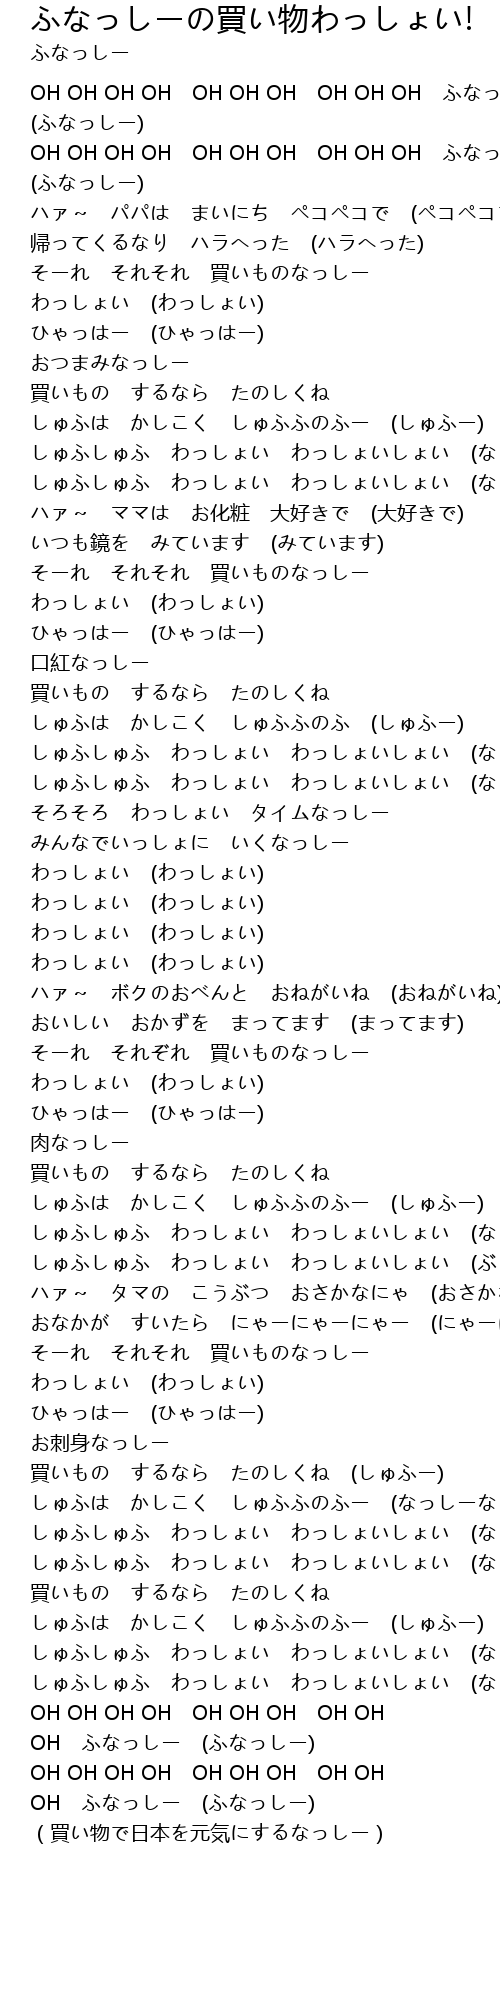 ふなっしーの買い物わっしょい!
ふなっしー
OH OH OH OH　OH OH OH　OH OH OH　ふなっ
(ふなっしー)
OH OH OH OH　OH OH OH　OH OH OH　ふなっ
(ふなっしー)
ハァ～　パパは　まいにち　ペコペコで　(ペコペコ
帰ってくるなり　ハラへった　(ハラへった)
そーれ　それそれ　買いものなっしー
わっしょい　(わっしょい)
ひゃっはー　(ひゃっはー)
おつまみなっしー
買いもの　するなら　たのしくね
しゅふは　かしこく　しゅふふのふー　(しゅふー)
しゅふしゅふ　わっしょい　わっしょいしょい　(な
しゅふしゅふ　わっしょい　わっしょいしょい　(な
ハァ～　ママは　お化粧　大好きで　(大好きで)
いつも鏡を　みています　(みています)
そーれ　それそれ　買いものなっしー
わっしょい　(わっしょい)
ひゃっはー　(ひゃっはー)
口紅なっしー
買いもの　するなら　たのしくね
しゅふは　かしこく　しゅふふのふ　(しゅふー)
しゅふしゅふ　わっしょい　わっしょいしょい　(な
しゅふしゅふ　わっしょい　わっしょいしょい　(な
そろそろ　わっしょい　タイムなっしー
みんなでいっしょに　いくなっしー
わっしょい　(わっしょい)
わっしょい　(わっしょい)
わっしょい　(わっしょい)
わっしょい　(わっしょい)
ハァ～　ボクのおべんと　おねがいね　(おねがいね)
おいしい　おかずを　まってます　(まってます)
そーれ　それぞれ　買いものなっしー
わっしょい　(わっしょい)
ひゃっはー　(ひゃっはー)
肉なっしー
買いもの　するなら　たのしくね
しゅふは　かしこく　しゅふふのふー　(しゅふー)
しゅふしゅふ　わっしょい　わっしょいしょい　(な
しゅふしゅふ　わっしょい　わっしょいしょい　(ぶ
ハァ～　タマの　こうぶつ　おさかなにゃ　(おさか
おなかが　すいたら　にゃーにゃーにゃー　(にゃー
そーれ　それそれ　買いものなっしー
わっしょい　(わっしょい)
ひゃっはー　(ひゃっはー)
お刺身なっしー
買いもの　するなら　たのしくね　(しゅふー)
しゅふは　かしこく　しゅふふのふー　(なっしーな
しゅふしゅふ　わっしょい　わっしょいしょい　(な
しゅふしゅふ　わっしょい　わっしょいしょい　(な
買いもの　するなら　たのしくね
しゅふは　かしこく　しゅふふのふー　(しゅふー)
しゅふしゅふ　わっしょい　わっしょいしょい　(な
しゅふしゅふ　わっしょい　わっしょいしょい　(な
OH OH OH OH　OH OH OH　OH OH
OH　ふなっしー　(ふなっしー)
OH OH OH OH　OH OH OH　OH OH
OH　ふなっしー　(ふなっしー)
( 買い物で日本を元気にするなっしー )